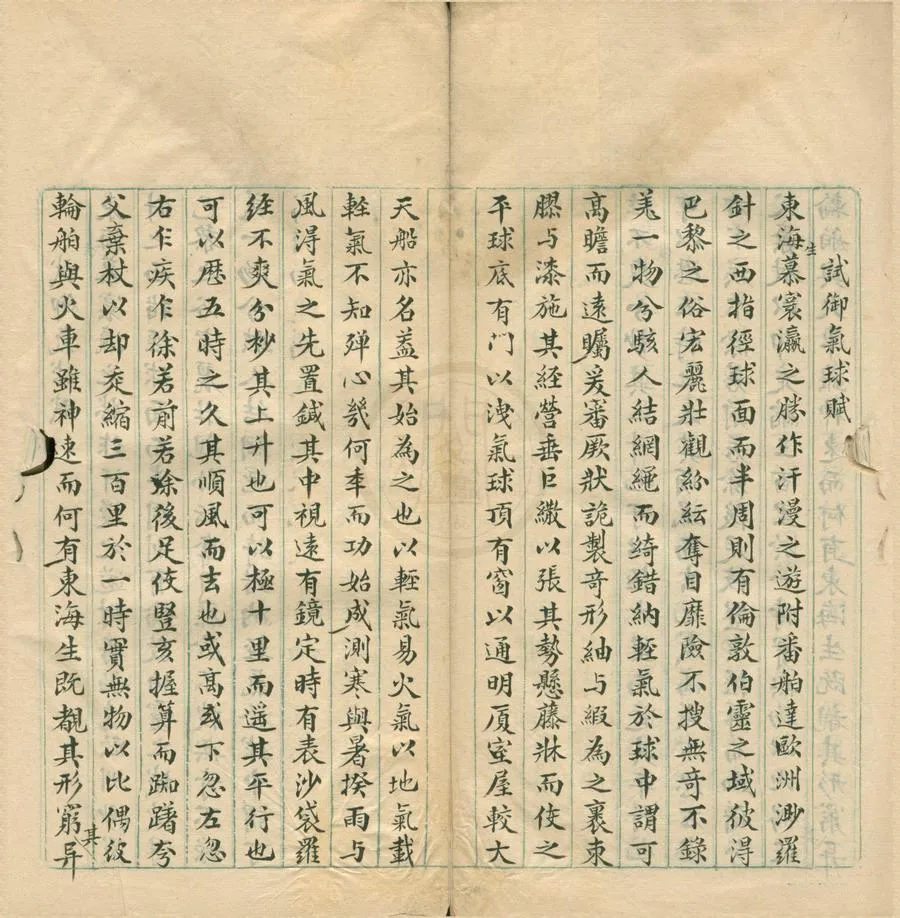 試御氣球賦
東海生慕寰瀛之勝作汗漫之遊附番舶達歐洲渺羅
針之西指徑球面而半周則有倫敦伯靈之域彼得
巴黎之俗宏麗壯觀紛紜奪目靡險不搜無竒不錄
羌一物兮駭人結網繩而綺錯納輕氣於球中謂可
髙瞻而遠矚爰審厥狀詭製竒形紬与緞為之裏朿
膠与漆施其経營垂巨繖以張其勢懸藤牀而使之
平球底有門以洩氣球頂有窗以通明厦室屋較大
天船亦名盖其始為之也以輕氣易火氣以地氣載
軽氣不知殫心幾何年而功始成測寒與暑揆雨与
風淂氣之先置鍼其中視遠有鏡定時有表沙袋羅
経不爽分杪其上升也可以極十里而遥其平行也
可以歴五時之久其順風而去也或髙或下忽左忽
右乍疾乍徐若前若後足使豎亥握算而踟躇夸
父棄杖以却奔縮三百里於一時實無物以比偶彼
輪舶與火車雖神速而何有東海生既覩其形窮其异